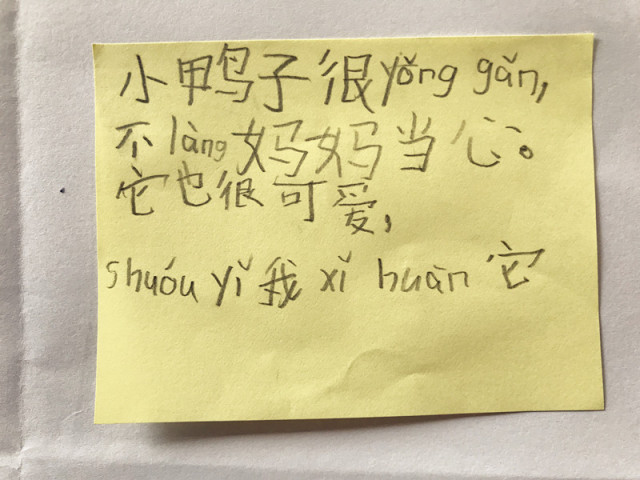 小鸭子很yǒng gǎn,
不làng妈妈当心。
它也很可爱,
shuóu yǐ我xǐ huàn它